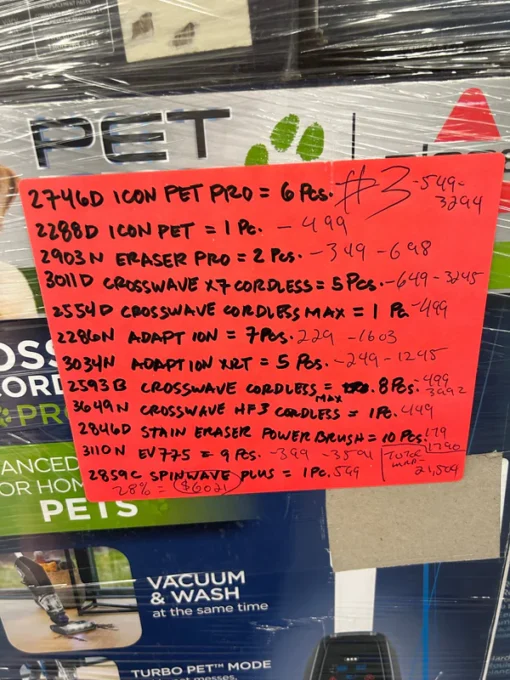 PET
2746D ICON PET PRO = 6 Pcs. #3 -549- 3294
2288D ICON PET = 1 Pc. - 499
2903N ERASER PRO = 2 Pcs. - 349 - 698
3011D CROSSWAVE X7 CORDLESS = 5 Pcs. - 649 - 3245
2554D CROSSWAVE CORDLESS MAX = 1 Pc -499
2286N ADAPT ION = 7 Pcs. 229 - 1603
3034N ADAPT ION XRT = 5 Pcs. - 249 - 1245
2593B CROSSWAVE CORDLESS MAX = 8 Pcs. -499 3992
3649N CROSSWAVE HF3 CORDLESS = 1 Pc. 449
2846D STAIN ERASER POWER BRUSH = 10 Pcs. 179 1790
3110N EV775 = 9 Pcs. - 399 - 3591
2859C SPINWAVE PLUS = 1 Pc. 599
28% = $6021
21,504
OSS
CORD
PR
ANCED
OR HOM
PETS
VACUUM
& WASH
at the same time
TURBO PET™ MODE
messes.